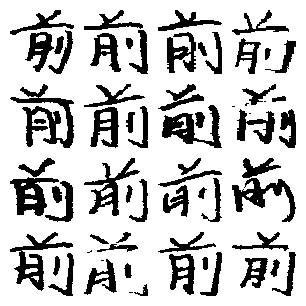 前前前前
前前前前
前前前前
前前前前